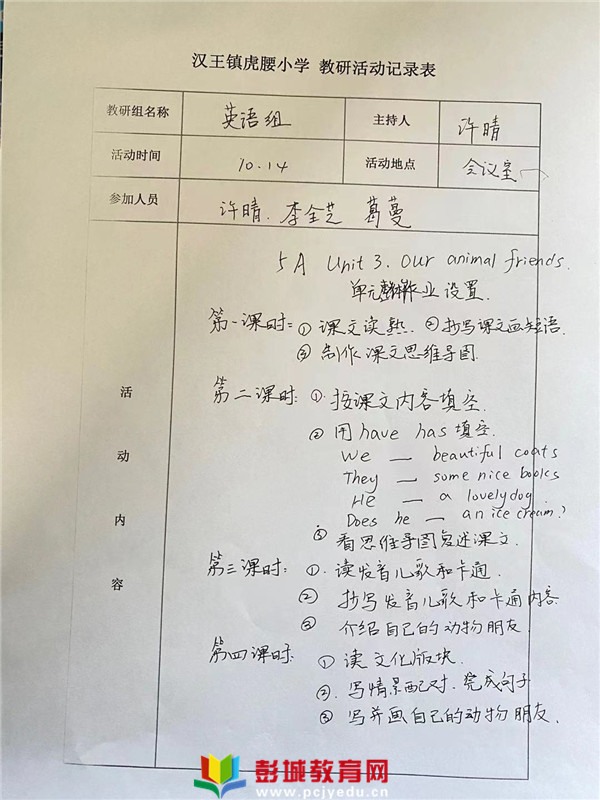 汉王镇虎腰小学 教研活动记录表
教研组名称 英语组 主持人 许晴
活动时间 10.14 活动地点 会议室
参加人员 许晴. 李全芝 葛蔓
5A Unit 3. Our animal friends.
单元整体作业设置.
第一课时: ① 课文读熟. ② 抄写课文画短语.
③ 制作课文思维导图.
第二课时: ①. 按课文内容填空.
② 用have has填空.
We — beautiful coats
They — some nice books
He — a lovely dog.
Does he — an ice cream?
③ 看思维导图复述课文.
第三课时: ①. 读发音儿歌和卡通.
② 抄写发音儿歌和卡通内容
③ 介绍自己的动物朋友.
第四课时: ① 读文化版块.
②. 写情景配对. 完成句子
③ 写并画自己的动物朋友.
活动内容
彭城教育网
www.pcjyedu.cn